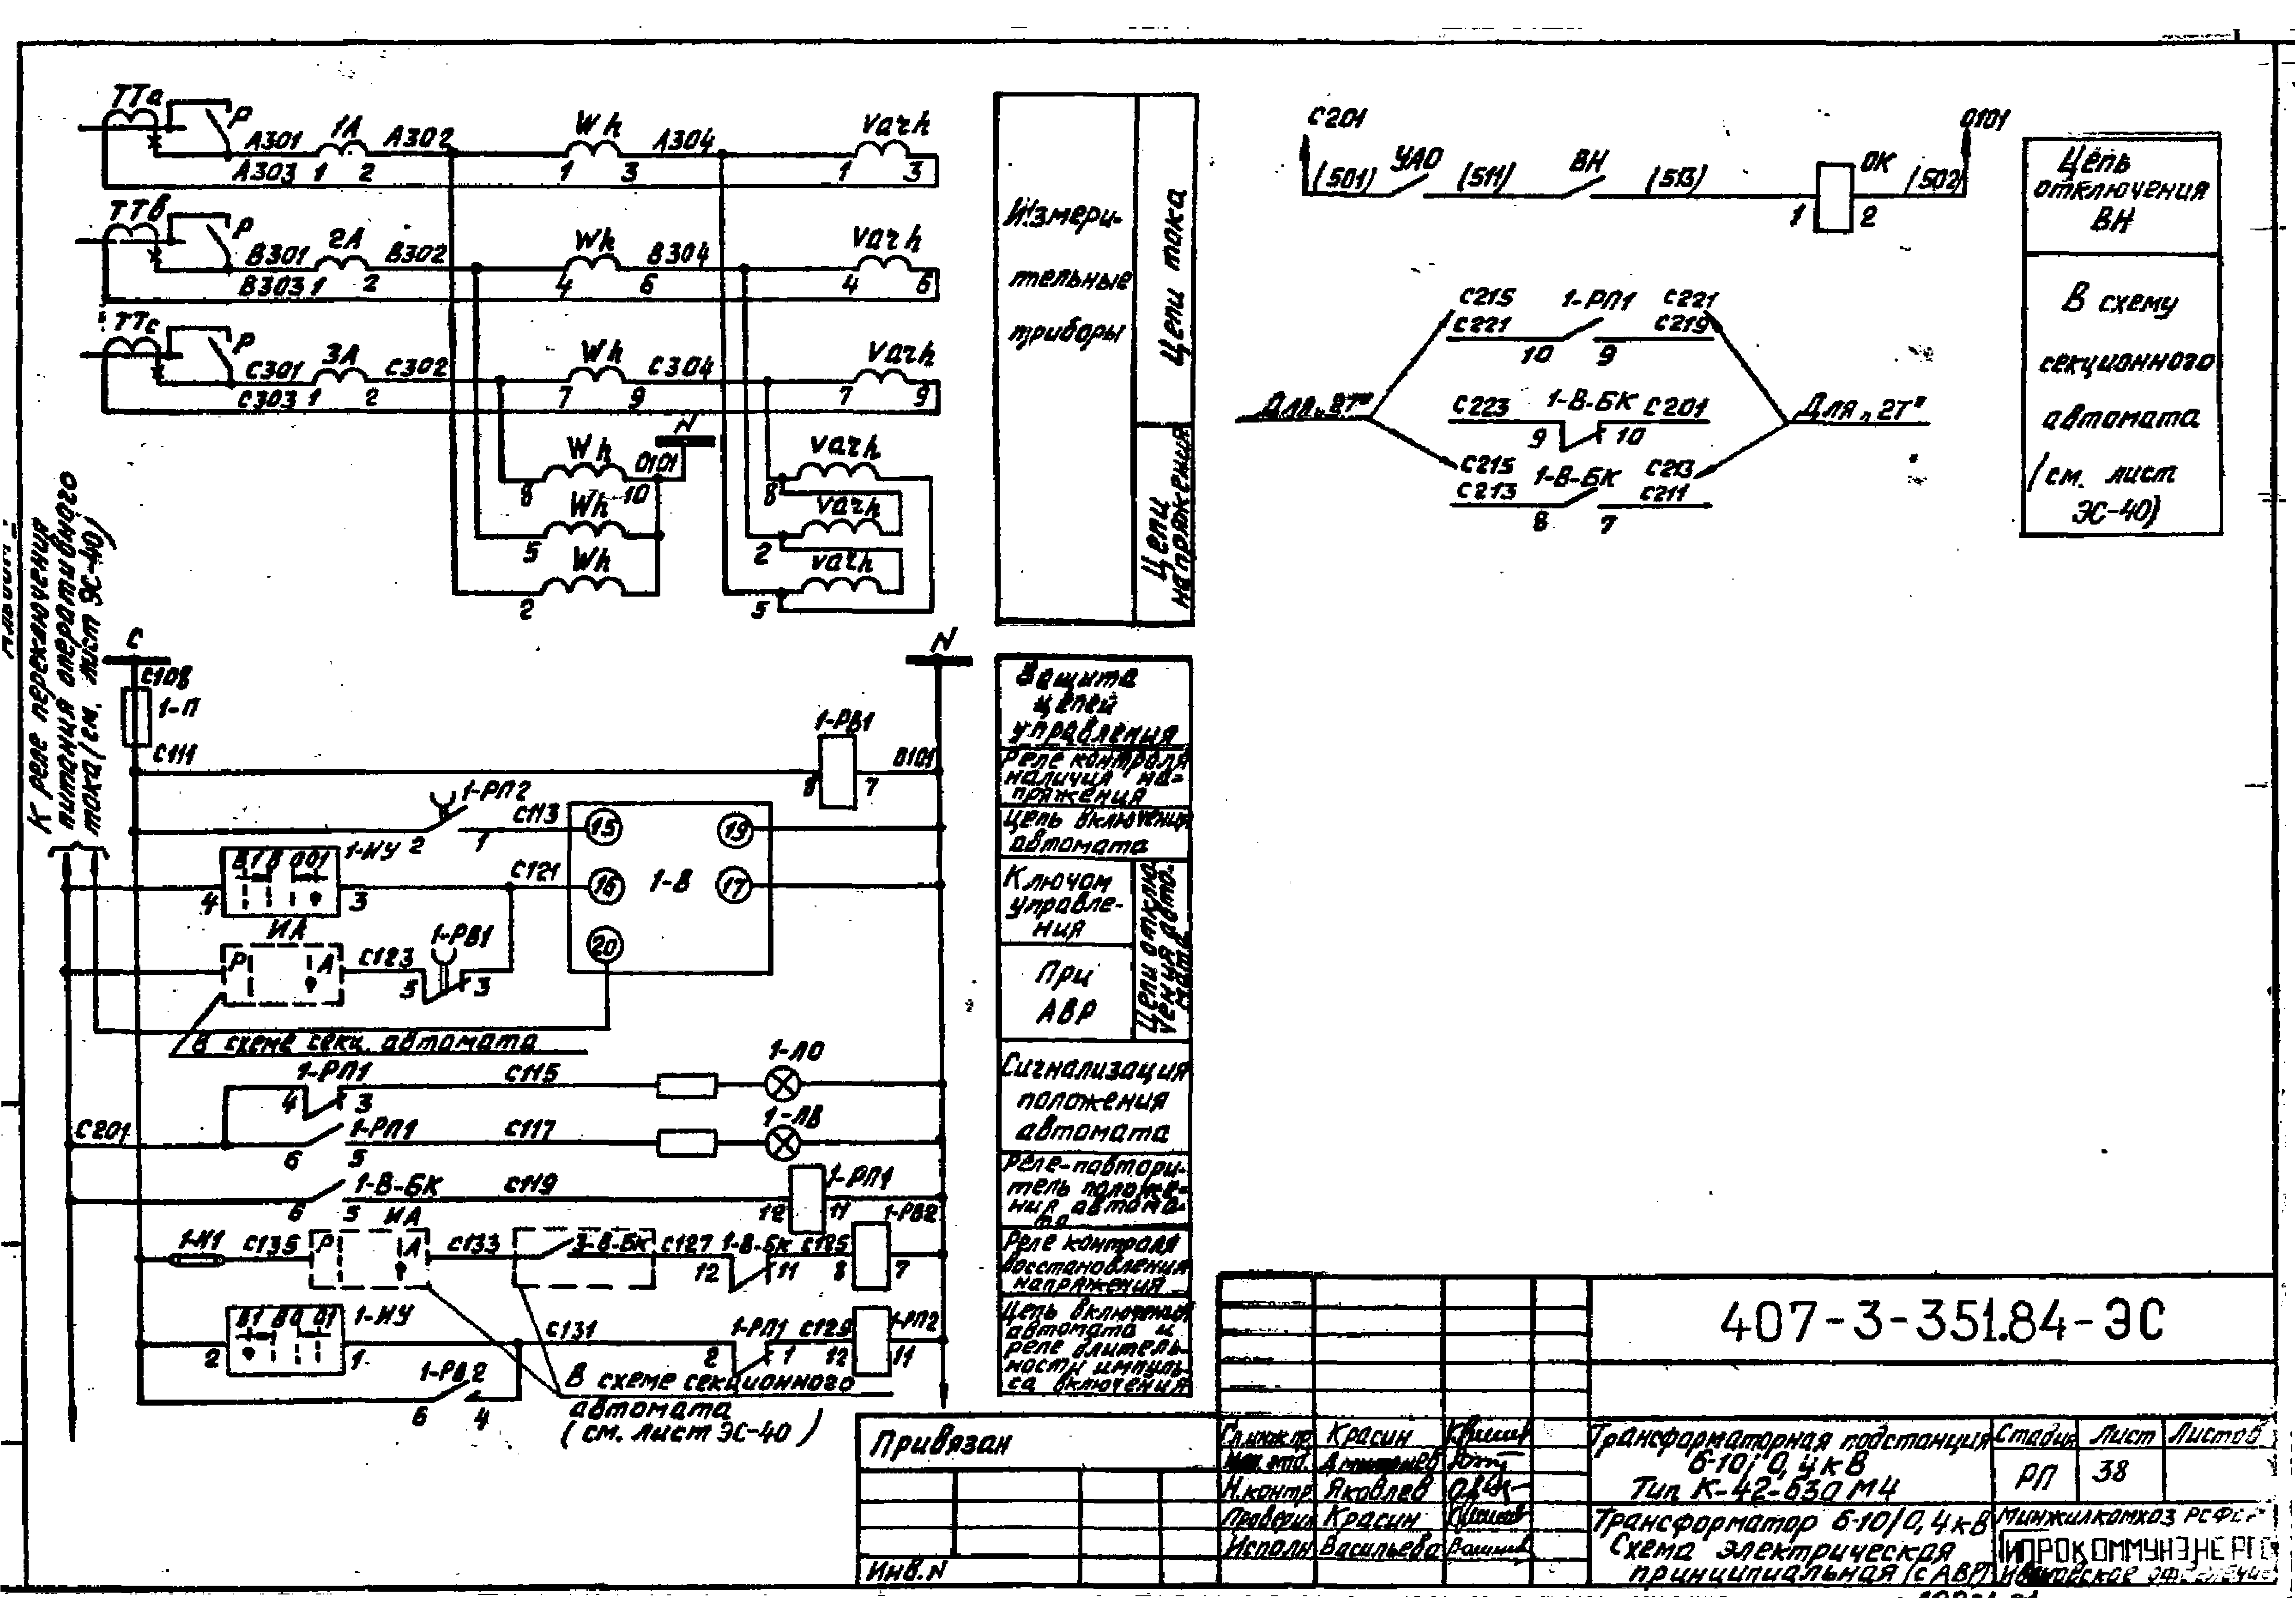 ТТа
Р
А301
1А
А302
Wh
А304
varh
А303
1
2
1
3
1
3
ТТв
Р
В301
2А
В302
Wh
В304
varh
В303
1
2
4
6
4
6
ТТс
Р
С301
3А
С302
Wh
С304
varh
С303
1
2
7
9
7
9
N
Wh
0101
varh
8
10
8
Wh
varh
5
2
Wh
varh
2
5
Измери-
тельные
приборы
Цепи тока
Цепи
напряжения
С201
0101
(501)
УАО
(511)
ВН
(513)
ОК
(502)
1
2
Цепь
отключения
ВН
С215
1-РП1
С221
С221
С219
10
9
Для „2Т"
С223
1-В-БК
С201
Для „2Т"
9
10
С215
1-В-БК
С213
С213
С211
8
7
В схему
секционного
автомата
/см. лист
ЭС-40)
К реле переключения
питания оперативного
тока (см. лист ЭС-40)
С
N
С108
1-П
С111
1-РВ1
0101
8
7
1-РП2
С113
2
1
15
19
В1 В 0 01
1-ИУ
С121
4
3
16
1-В
17
ИА
Р
А
С123
1-РВ1
5
3
20
В схеме секц. автомата
1-РП1
С115
1-ЛО
4
3
С201
1-РП1
С117
1-ЛВ
6
5
1-В-БК
С119
1-РП1
6
5
12
11
ИА
1-РВ2
1-И1
С135
Р
А
С133
3-В-БК
С127
1-В-БК
С125
12
11
8
7
В1 В0 01
1-ИУ
С131
1-РП1
С129
1-РП2
2
1
2
1
12
11
1-РВ2
6
4
В схеме секционного
автомата
(см. лист ЭС-40)
Защита
цепей
управления
Реле контроля
наличия на-
пряжения
Цепь включения
автомата
Ключом
управле-
ния
При
АВР
Цепи отклю-
чения авто-
мата
Сигнализация
положения
автомата
Реле-повтори-
тель положе-
ния автома-
та
Реле контроля
восстановления
напряжения
Цепь включения
автомата и
реле длитель-
ности импуль-
са включения
407-3-351.84-ЭС
Привязан
Инв.N
Гл.инж.пр.
Красин
Н.контр.
Яковлев
Проверил
Красин
Исполн.
Васильева
Трансформаторная подстанция
6-10/0,4кВ
Тип К-42-630 М4
Стадия
Лист
Листов
РП
38
Трансформатор 6-10/0,4кВ
Схема электрическая
принципиальная (с АВР)
Минжилкомхоз РСФСР
ГИПРОКОММУНЭНЕРГО
Ивановское отделение